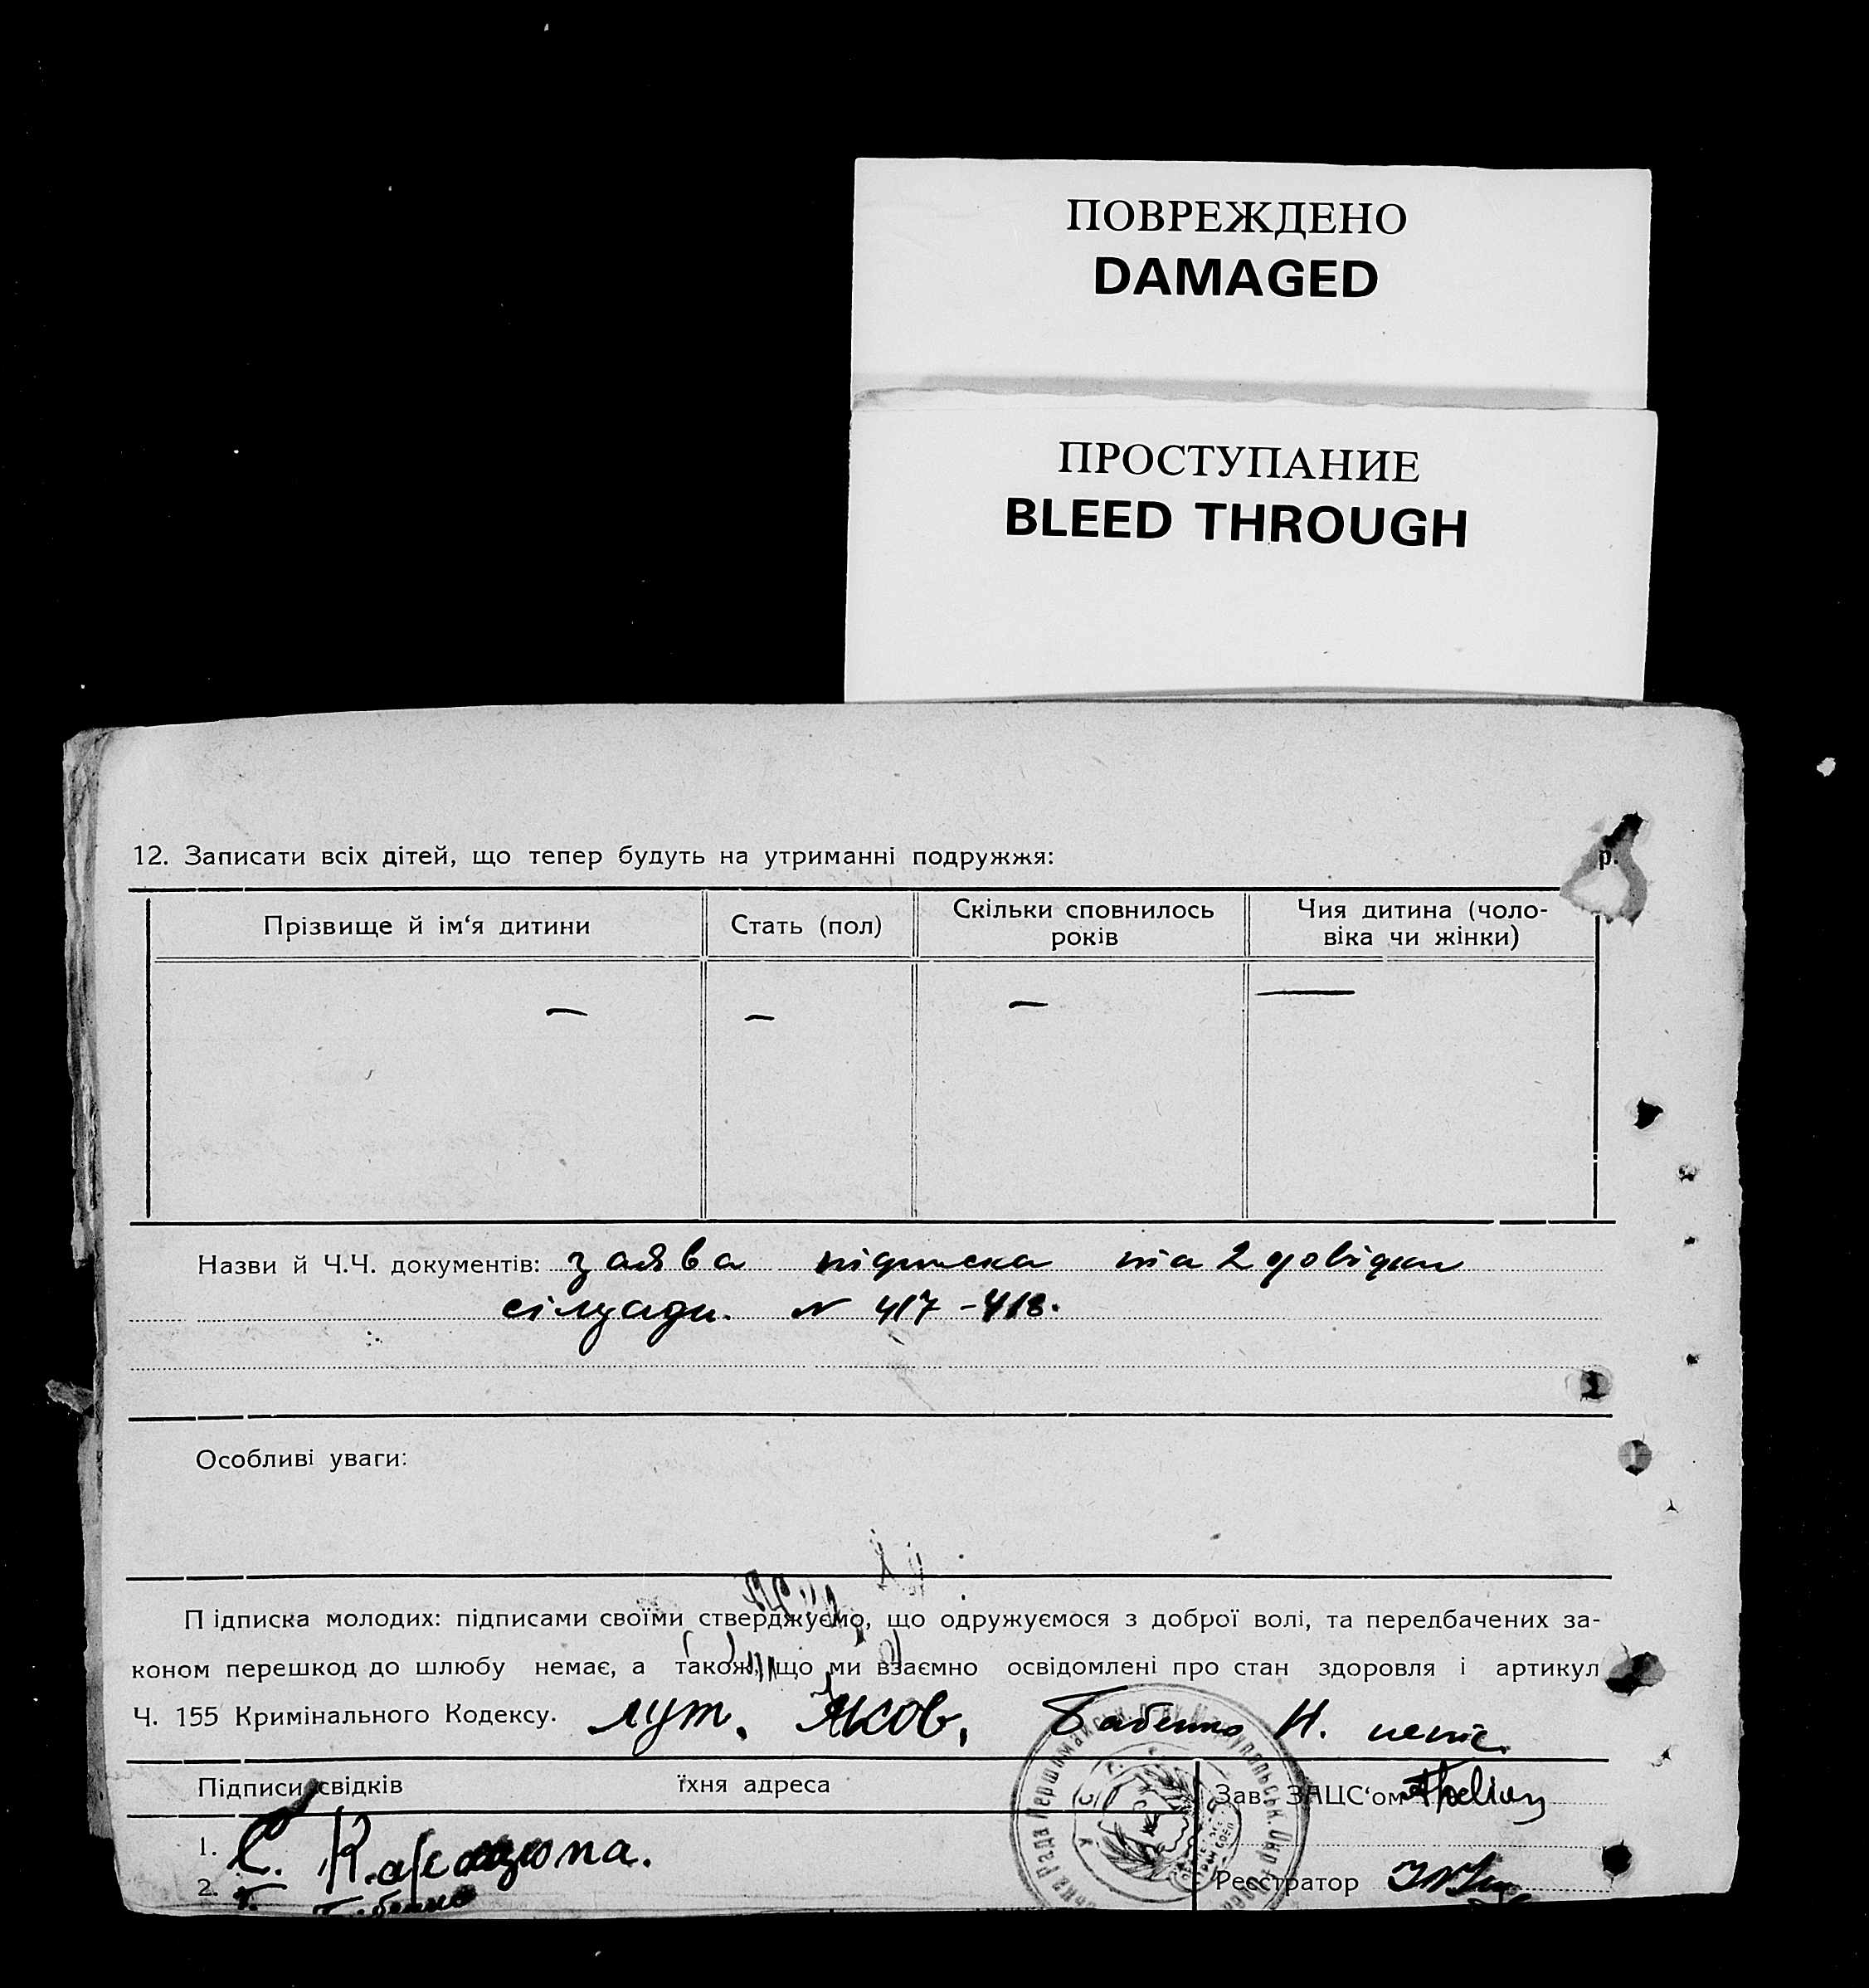 ПОВРЕЖДЕНО
DAMAGED
ПРОСТУПАНИЕ
BLEED THROUGH
12. Записати всіх дітей, що тепер будуть на утриманні подружжя:
р.
Прізвище й ім‘я дитини
Стать (пол)
Скільки сповнилось
років
Чия дитина (чоло-
віка чи жінки)
— — — —
Назви й Ч.Ч. документів: заява підписка та 2 довідки
сілради. N 417 - 418.
Особливі уваги:
П ідписка молодих: підписами своїми стверджуємо, що одружуємося з доброї волі, та передбачених за-
коном перешкод до шлюбу немає, а також, що ми взаємно освідомлені про стан здоровля і артикул
Ч. 155 Кримінального Кодексу. Яков. Бабенко Н.
Підписи свідків
їхня адреса
Зав. ЗАЦС‘ом
1. С.
2. Г. Бабенко
Реєстратор